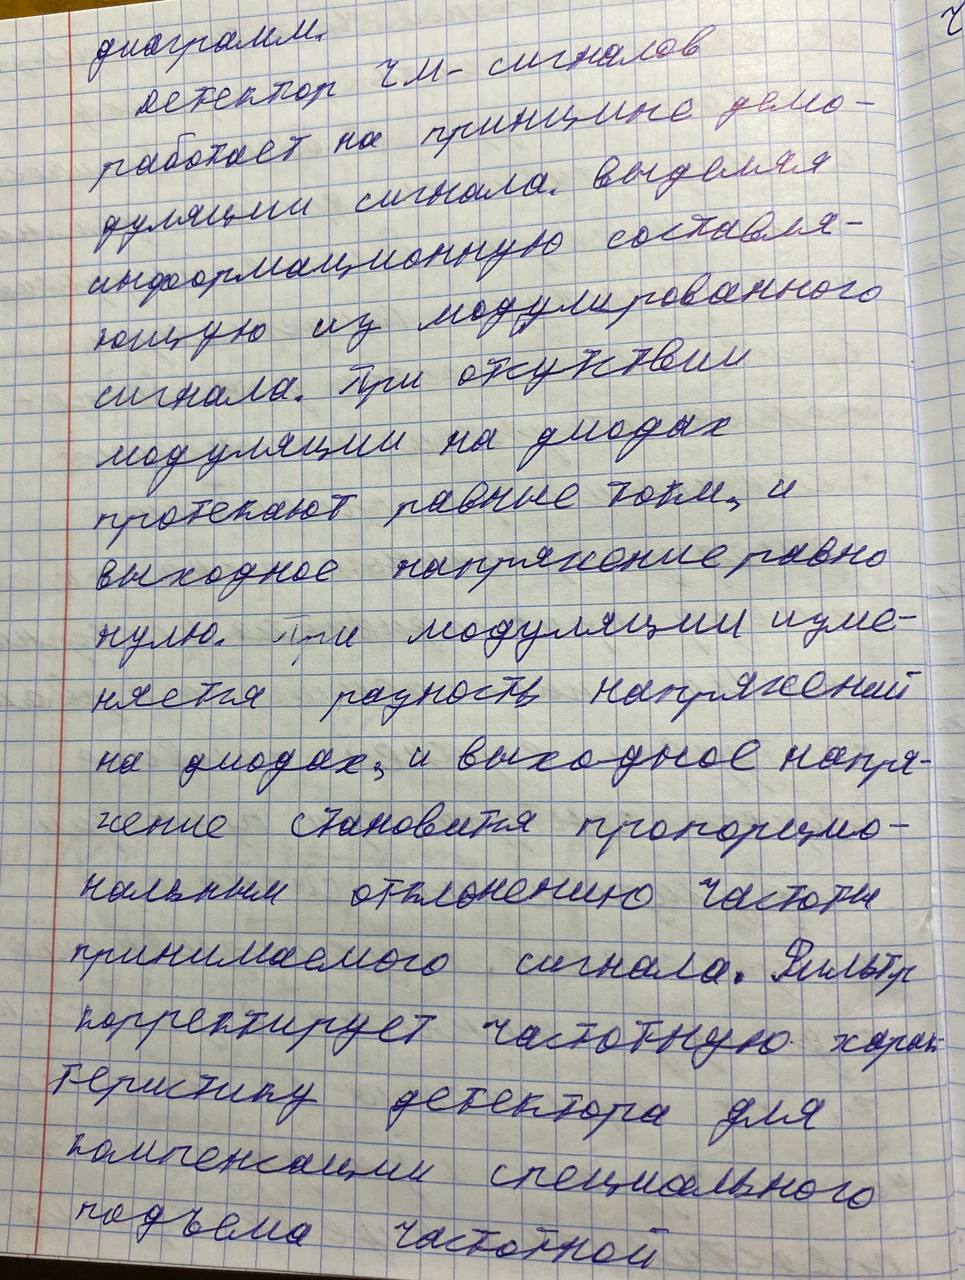 диаграмм.
Детектор ЧМ-сигналов
работает на принципе демо-
дуляции сигнала. выделяя
информационную составля-
ющую из модулированного
сигнала. При отсутствии
модуляции на диодах
протекают равные токи, и
выходное напряжение равно
нулю. При модуляции изме-
няется разность напряжений
на диодах, и выходное напря-
жение становится пропорцио-
нальным отклонению частоты
принимаемого сигнала. Фильтр
корректирует частотную харак-
теристику детектора для
компенсации специального
подъема частотной